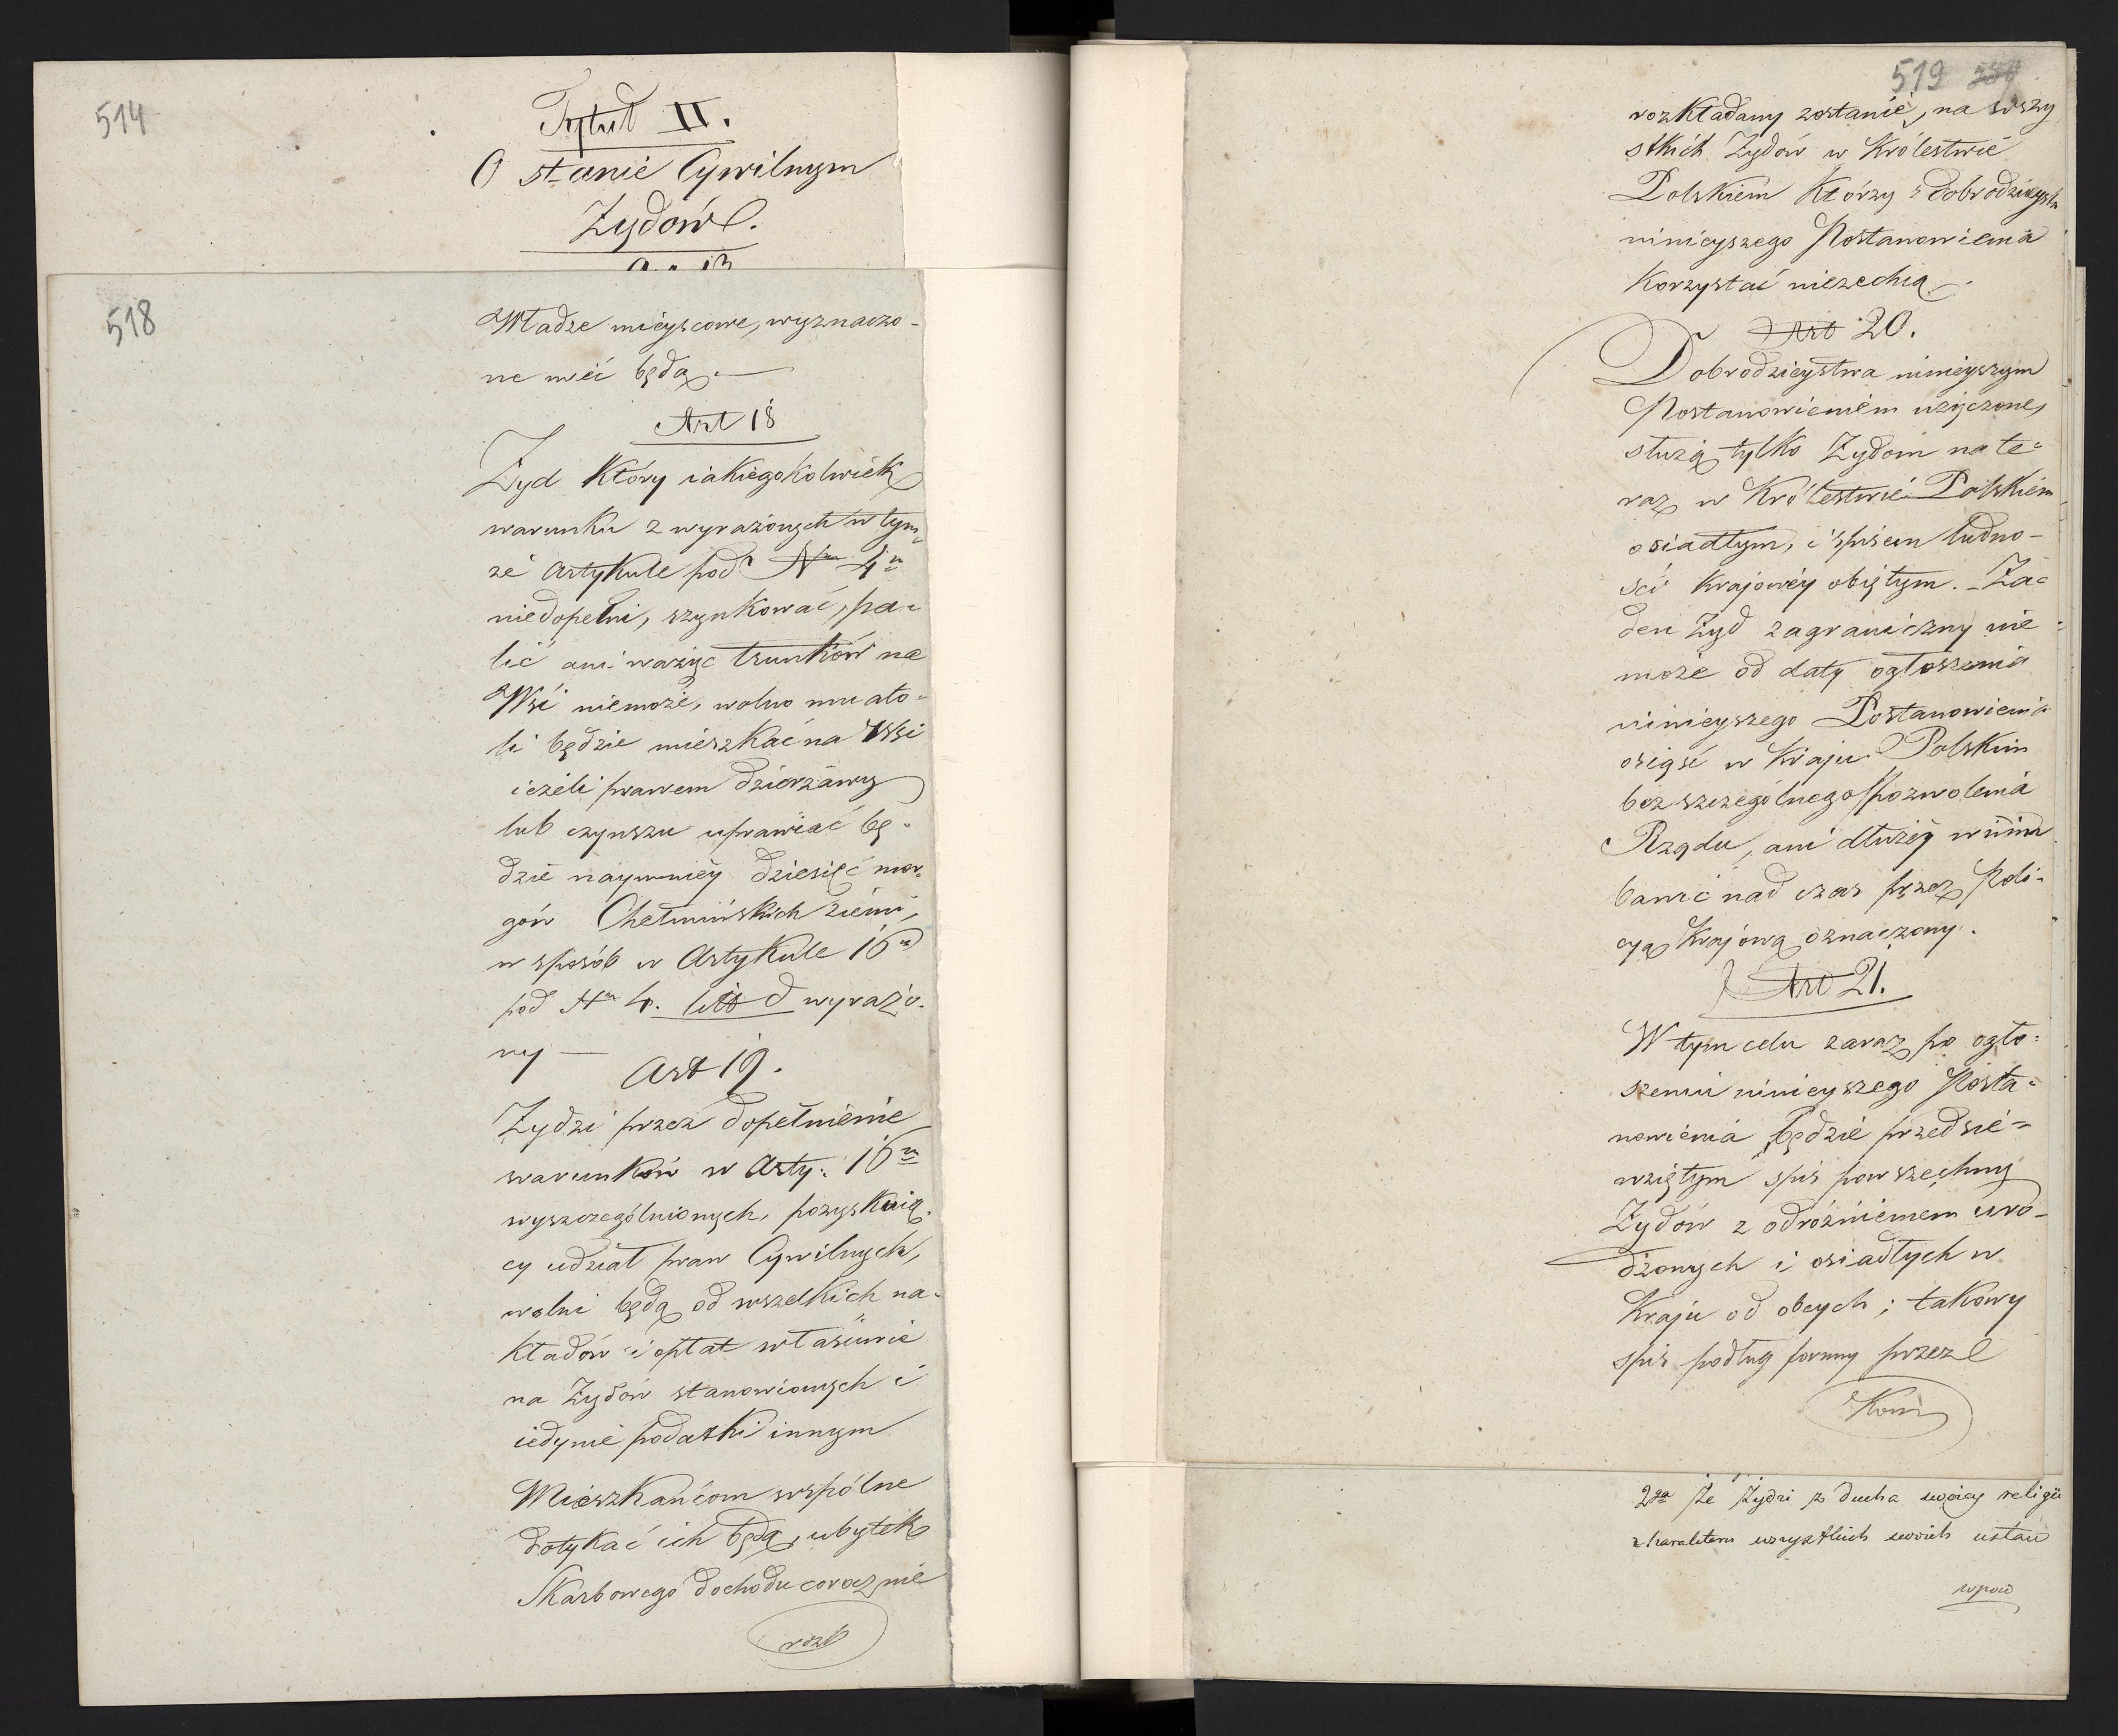 514
Tytuł II.
O stanie Cywilnym
Żydów.
518
Władze mieyscowe, wyznaczo-
ne mieć będą. —
Art 18
Żyd Który iakiegokolwiek
warunku z wyrażonych w tym
że Artykule pod Nm 4m
niedopełni, szynkować, pa-
lić ani ważyć trunków na
Wsi niemoże, wolno mu ato-
li będzie mieszkać na Wsi
ieżeli prawem dzierżawy
lub czynszu uprawiać bę-
dzie naymniey dziesięć mor-
gów Chełmińskich ziemi,
w sposób w Artykule 16m
pod Nm 4. litt d wyrażo-
ny —
Art 19.
Żydzi przez dopełnienie
warunków w Arty: 16m
wyszczególnionych, pozyskuią-
cy udział praw Cywilnych,
wolni będą od wszelkich na-
kładów i opłat właściwie
na Żydów stanowionych i
iedynie podatki innym
Mieszkańcom wspólne
dotykać ich będą, ubytek
Skarbowego dochodu corocznie
rozk
519
rozkładany zostanie, na wszy
stkich Żydów w Królestwie
Polskiem Którzy z dobrodzieystw
ninieyszego Postanowienia
Korzystać niezechcą.
Art 20.
Dobrodzieystwa ninieyszym
Postanowieniem użyczone,
służą tylko Żydom na te-
raz w Królestwie Polskiem
osiadłym, i spisem ludno-
ści Krajowéy obiętym. – Ża-
den Żyd zagraniczny nie
może od daty ogłoszenia
ninieyszego Postanowienia
osiąść w Kraju Polskim
bez szczególnego pozwolenia
Rządu, ani dłużéy w nim
bawić nad czas przez Poli-
cyą Krajową oznaczony.
Art 21.
W tym celu zaraz po ogło-
szeniu ninieyszego Posta-
nowienia będzie przedsię-
wziętym spis powszechny
Żydów z odróżnieniem uro-
dzonych i osiadłych w
Kraju od obcych; takowy
spis podług formy przez
Kom
2ga Że Żydzi z ducha swoiey religii
z karakteru wszystkich swoich ustaw
wpow